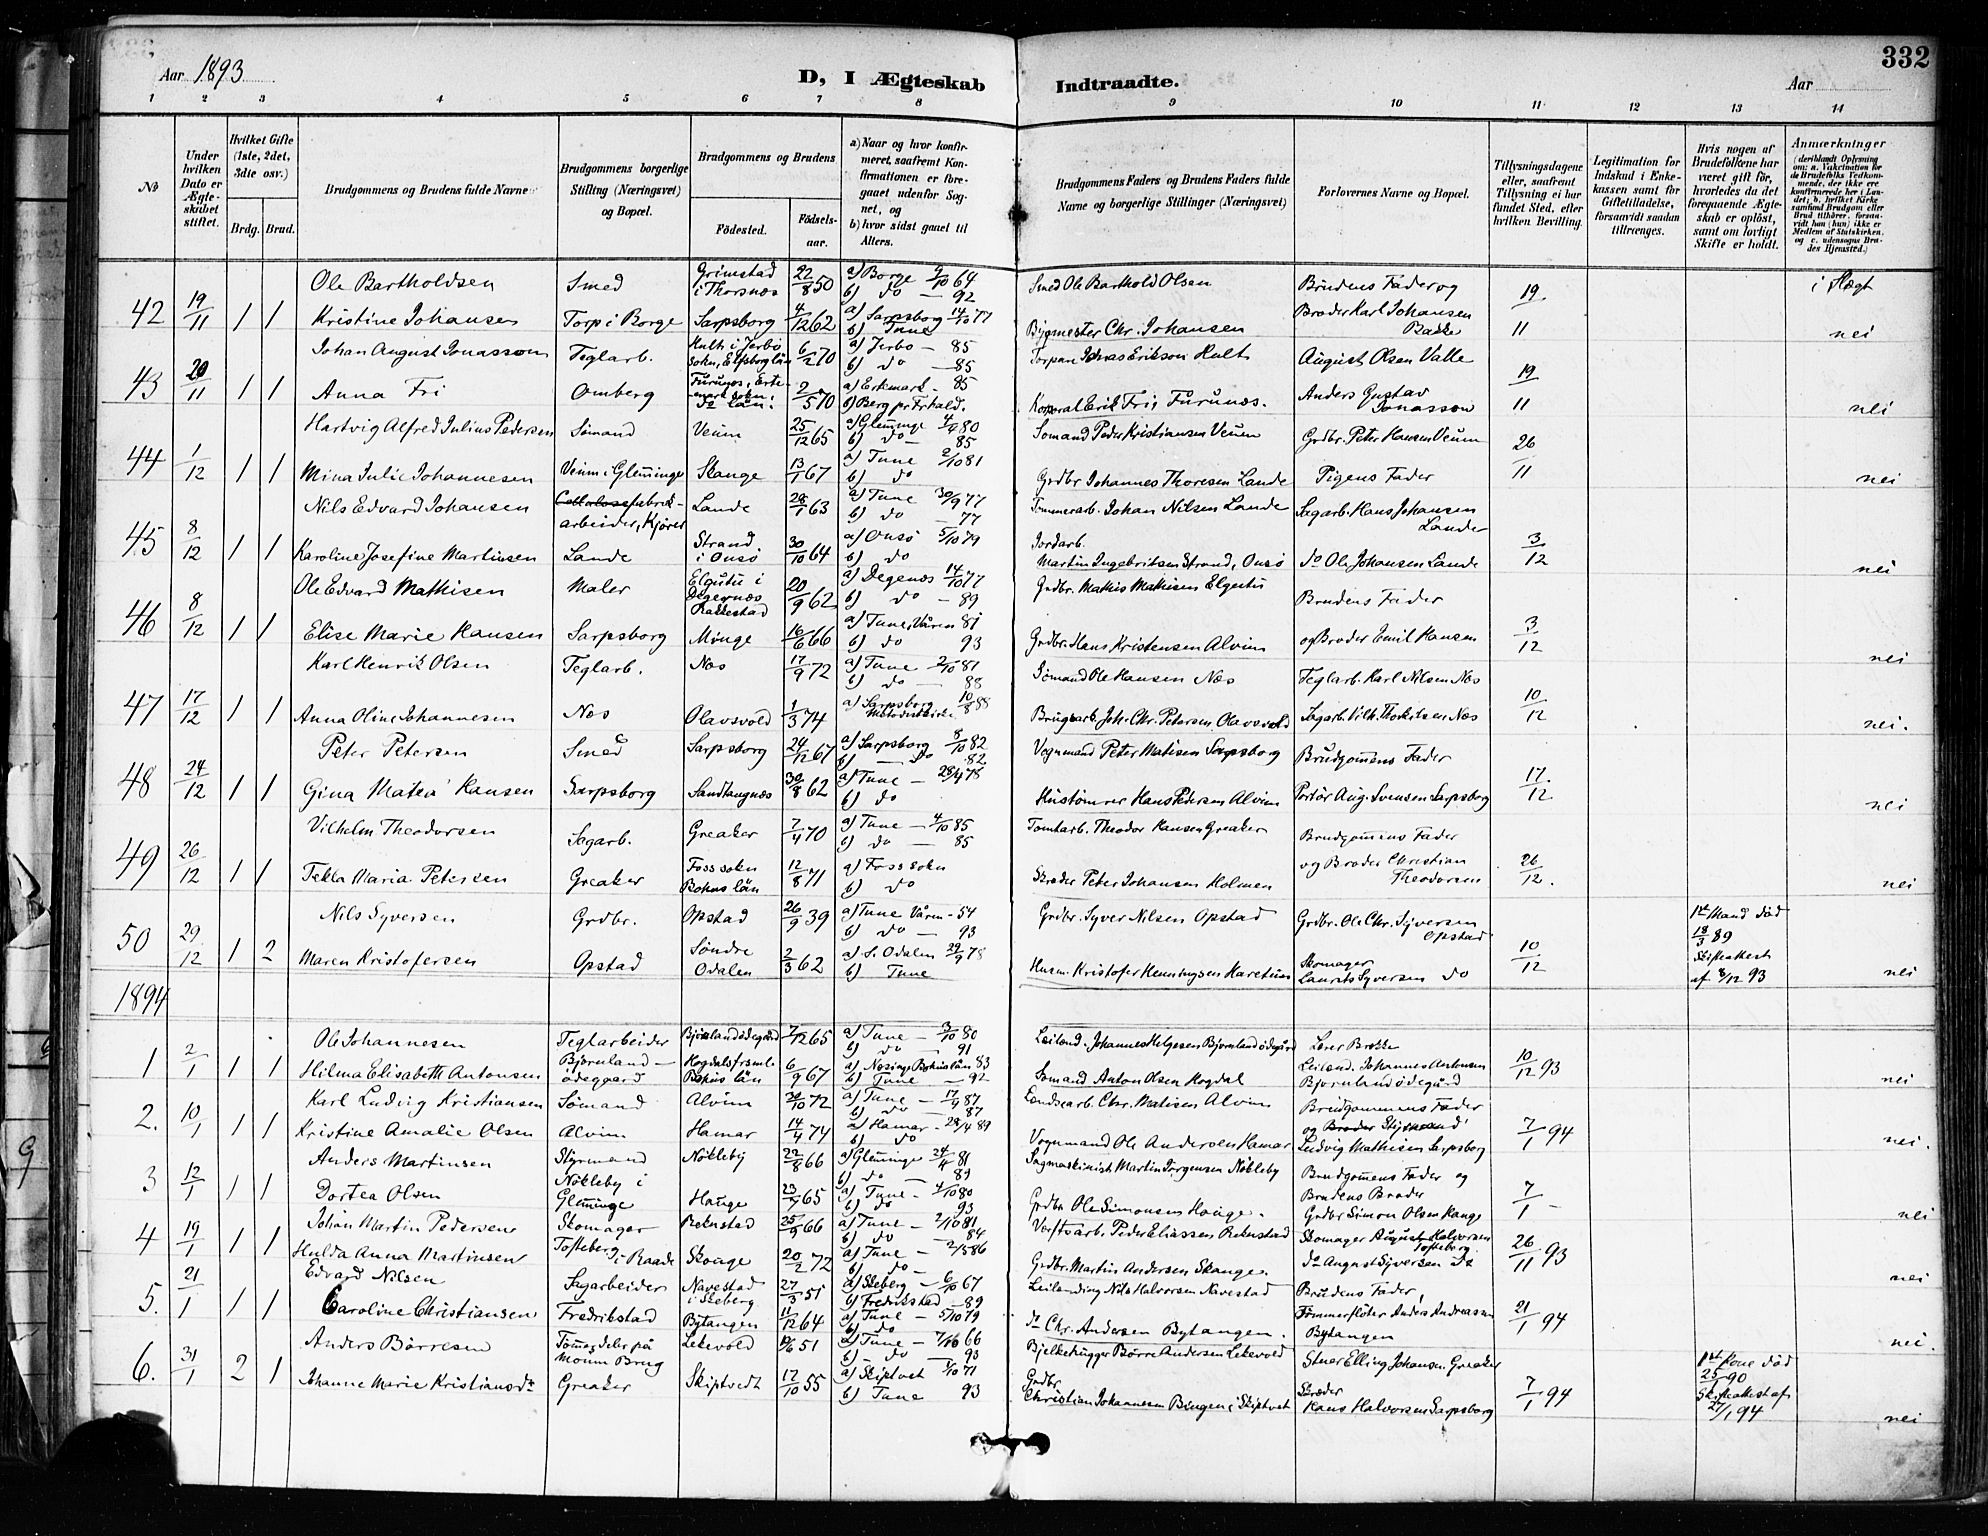 332
Aar 1893
D, I Ægteskab Indtraadte.
Aar
1 2 3 4 5 6 7 8 9 10 11 12 13 14
No
Under hvilken Dato er Ægteskabet stiftet.
Hvilket Gifte (1ste, 2det, 3die osv.)
Brdg. Brud.
Brudgommens og Brudens fulde Navne
Brudgommens borgerlige Stilling (Næringsvei) og Bopæl.
Brudgommens og Brudens
Fødested.
Fødselsaar.
a) Naar og hvor konfirmeret, saafremt Konfirmationen er foregaaet udenfor Sognet, og
b) hvor sidst gaaet til Alters.
Brudgommens Faders og Brudens Faders fulde Navne og borgerlige Stillinger (Næringsvei)
Forlovernes Navne og Bopæl.
Tillysningsdagene eller, saafremt Tillysning ei har fundet Sted, efter hvilken Bevilling.
Legitimation for Indskud i Enkekassen samt for Giftetilladelse, forsaavidt saadan tiltrænges.
Hvis nogen af Brudefolkene har været gift før, hvorledes da det foregaaende Ægteskab er opløst, samt om lovligt Skifte er holdt.
Anmærkninger
Ole Bartholdsen Smed Grimstad i Thorsnæs 22/8 50 a) Borge 9/10 64 b) do — 92 Smed Ole Barthold Olsen Brudens Fader og i Slægt
42 19/11 1 1 Kristine Johansen Torp i Borge Sarpsborg 4/12 62 a) Sarpsborg 14/10 77 b) Tune Bygmester Chr. Johansen Broder Karl Johansen Bakke 19/11 nei
Johan August Jonasson Teglarb. Hult i Jerbo sokn, Elfsborg län 6/2 70 a) Jerbo — 85 b) do — 85 Torpan Johas Erikson Hult August Olsen Valle
43 20/11 1 1 Anna Fri Omberg Furunæs, Ertemark sokn, do län. 2/5 70 a) Ertemark — 85 b) Berg pr Frhald. Korporal Erik Fri, Furunæs. Anders Gustav Jonasson 19/11 nei
Hartvig Alfred Julius Pedersen Sømand Veum 25/12 65 a) Glemminge 4/9 80 b) do 85 Sømand Peder Kristiansen Veum Grdbr. Peter Hansen Veum
44 1/12 1 1 Mina Julie Johannesen Veum i Glemminge Skange 13/1 67 a) Tune 2/10 81 b) do Grdbr Johannes Thoresen Lande Pigens Fader 26/11 nei
Nils Edvard Johansen Cellulosefabrikarbeider, Kjører Lande 28/1 63 a) Tune 30/9 77 b) do — 77 Tømmerarb. Johan Nilsen Lande Sagarb. Hans Johansen Lande
45 8/12 1 1 Karoline Josefine Martinsen Lande Strand i Onsø 30/10 64 a) Onsø 5/10 79 b) do Jordarb. Martin Ingebritsen Strand, Onsø do Ole Johansen Lande 3/12 nei
Ole Edvard Mathisen Maler Elgutu i Degernæs Rakkestad 20/9 62 a) Degenæs 14/10 77 b) do — 89 Grdbr. Mathis Mathisen Elgutu Brudens Fader
46 8/12 1 1 Elise Marie Hansen Sarpsborg Minge 16/6 66 a) Tune, Våren 81 b) do 93 Grdbr. Hans Kristensen Alvim og Broder Emil Hansen 3/12 nei
Karl Henrik Olsen Teglarb. Næs 17/9 72 a) Tune 2/10 81 b) do — 88 Sømand Ole Hansen Næs Teglarb. Karl Nilsen Næs
47 17/12 1 1 Anna Oline Johannesen Næs Olavsvold 1/3 74 a) Sarpsborg Metodistkirke 10/8 88 Brugsarb. Joh. Chr. Petersen Olavsvold Sagarb. Vilh. Thorkilsen Næs 10/12 nei.
Peter Petersen Smed Sarpsborg 24/12 67 a) Sarpsborg 8/10 82 b) — do 82 Vognmand Peter Matisen Sarpsborg Brudgomens Fader
48 24/12 1 1 Gina Matea Hansen Sarpsborg Sandtangnæs 30/8 62 a) Tune — 28/4 78 b) do Hustømrer Hans Pedersen Alvim Portør Aug. Svensen Sarpsborg 17/12 nei
Vilhelm Theodorsen Sagarb. Greaker 7/4 70 a) Tune — 4/10 85 b) do — 85 Tomtarb. Theodor Hansen Greaker Brudgomens Fader
49 26/12 1 1 Tekla Maria Petersen Greaker Foss sokn Bohus län 12/8 71 a) Foss sokn b) do Skræder Peter Johansen Holmen og Broder Christian Theodorsen 26/12. nei
Nils Syversen Grdbr. Opstad 26/9 39 a) Tune Våren — 54 b) do — 93 Grdbr. Syver Nilsen Opstad Grdbr. Ole Chr. Syversen Opstad 1st Mand død 18/3 89
50 29/12 1 2 Maren Kristofersen Opstad Søndre Odalen 2/3 62 a) S. Odalen 29/9 78 b) Tune Husm. Kristofer Henningsen Haretun Skomager Laurits Syversen do 10/12 Skifteattest af 8/12 93 nei
1894
Ole Johannesen Teglarbeider Bjørnlandødegård 7/12 65 a) Tune — 3/10 80 b) do — 91 Leiland. Johannes Helgesen Bjørnlandødegård Lærer Brekke
1 2/1 1 1 Hilma Elisabeth Antonsen Bjørnlandødegaard Hogdals forsml. Bohus län 6/9 67 a) Nesinge Bohus län 83 b) Tune — 92 Sømand Anton Olsen Hogdal Leiland. Johannes Antonsen Bjørnlandødegård 10/12 93 nei
Karl Ludvig Kristiansen Sømand Alvim 20/10 72 a) Tune — 17/4 87 b) do — 87 Landsearb. Chr. Matisen Alvim Brudgommens Fader
2. 10/1 1 1 Kristine Amalie Olsen Alvim Hamar 14/4 74 a) Hamar — 28/4 89 b) do Vognmand Ole Andersen Hamar og Broder Styrmand Ludvig Mathisen Sarpsborg 7/1 94 nei.
Anders Martinsen Styrmand Nökleby 22/8 66 a) Glemminge 24/4 81 b) do — 89 Sagmaskinist Martin Jørgensen Nökleby Brudgomens Fader og
3 12/1 1 1 Dortea Olsen Nökleby i Glemminge Hauge 23/7 65 a) Tune — 4/10 80 b) do 93 Grdbr Ole Simonsen Hauge. Brudens Broder Grdbr Simon Olsen Hauge 7/1 — nei
Johan Martin Pedersen Skomager Rekustad 25/9 66 a) Tune — 2/10 81 b) do — 84 Verftsarb. Peder Eliassen Rekustad Skomager August Halvorsen Tofteberg
4 19/1 1 1 Hulda Anna Martinsen Tofteberg i Raade Skouge 20/2 72 a) Tune — 2/5 86 b) do — Grdbr. Martin Andersen Skange do August Syversen do 26/11 93 nei
Edvard Nilsen Sagarbeider Navestad i Skeberg 27/3 51 a) Skeberg — 6/10 67 b) Fredrikstad — 89 Leilænding Nils Halvorsen Navestad Brudens Fader,
5. 21/1 1 1 Caroline Christiansen Fredrikstad Bytangen 11/12 64 a) Tune — 5/10 79 b) do do Chr. Andersen Bytangen. Tømmerfløter Anders Andreassen Bytangen 21/1 94 nei.
Anders Børresen Tømmedeler på Moum Brug Lekevold 19/6 51 a) Tune — 7/10 66 b) do — 93 Bjelkehugger Børre Andersen Lekevold Stuer Elling Johansen Greaker 1st Kone død 25/1 90
6. 31/1 2 1 Johanne Marie Kristiansdtr Greaker Skiptvedt 17/10 55 a) Skiptvet 1/10 71 b) Tune 93 Grdbr. Christian Johannesen Bingen i Skiptvet Skræder Hans Halvorsen Sarpsborg 7/1 94 Skifteattest af 27/1 94 nei